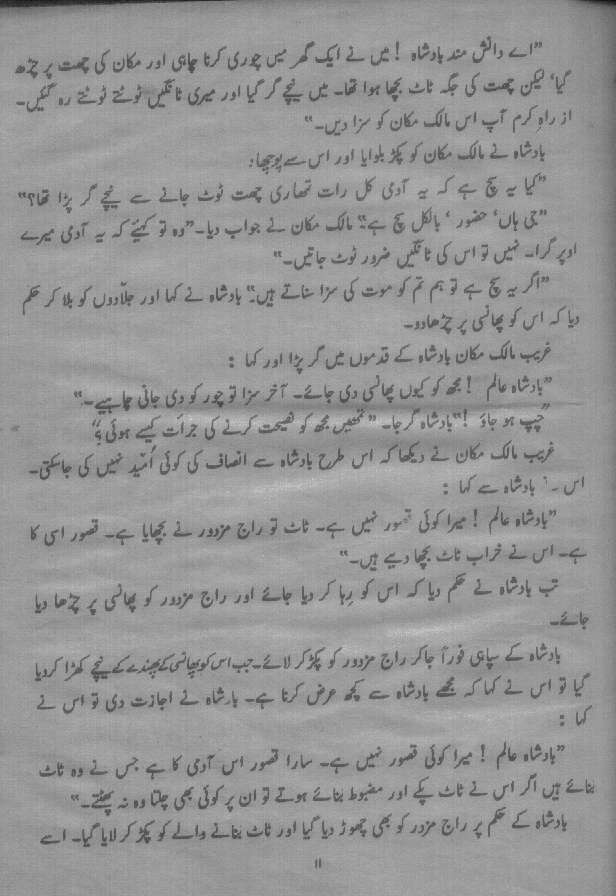 ”اے دانش مند بادشاہ ! میں نے ایک گھر میں چوری کرنا چاہی اور مکان کی چھت پر چڑھ
گیا، لیکن چھت کی جگہ ٹاٹ بچھا ہوا تھا۔ میں نیچے گر گیا اور میری ٹانگیں ٹوٹتے ٹوٹتے رہ گئیں۔
از راہِ کرم آپ اس مالک مکان کو سزا دیں۔“
بادشاہ نے مالک مکان کو پکڑ بلوایا اور اس سے پوچھا:
”کیا یہ سچ ہے کہ یہ آدمی کل رات تمھاری چھت ٹوٹ جانے سے نیچے گر پڑا تھا؟“
”جی ہاں، حضور ، بالکل سچ ہے“ مالک مکان نے جواب دیا۔ ”وہ تو کہیئے کہ یہ آدمی میرے
اوپر گرا۔ نہیں تو اس کی ٹانگیں ضرور ٹوٹ جاتیں۔“
”اگر یہ سچ ہے تو ہم تم کو موت کی سزا سناتے ہیں“ بادشاہ نے کہا اور جلّادوں کو بلا کر حکم
دیا کہ اس کو پھانسی پر چڑھادو۔
غریب مالک مکان بادشاہ کے قدموں میں گر پڑا اور کہا :
”بادشاہ عالم ! مجھ کو کیوں پھانسی دی جائے۔ آخر سزا تو چور کو دی جانی چاہیے۔“
”چپ ہو جاؤ !“ بادشاہ گرجا۔ ”تمھیں مجھ کو نصیحت کرنے کی جرأت کیسے ہوئی؟“
غریب مالک مکان نے دیکھا کہ اس طرح بادشاہ سے انصاف کی کوئی اُمّید نہیں کی جاسکتی۔
اس نے بادشاہ سے کہا :
”بادشاہ عالم ! میرا کوئی قصور نہیں ہے۔ ٹاٹ تو راج مزدور نے بچھایا ہے۔ قصور اسی کا
ہے۔ اس نے خراب ٹاٹ بچھا دیے ہیں۔“
تب بادشاہ نے حکم دیا کہ اس کو رِہا کر دیا جائے اور راج مزدور کو پھانسی پر چڑھا دیا
جائے۔
بادشاہ کے سپاہی فوراً جاکر راج مزدور کو پکڑ کر لائے۔ جب اس کو پھانسی کے پھندے کے نیچے کھڑا کردیا
گیا تو اس نے کہا کہ مجھے بادشاہ سے کچھ عرض کرنا ہے۔ بادشاہ نے اجازت دی تو اس نے
کہا :
”بادشاہ عالم ! میرا کوئی قصور نہیں ہے۔ سارا قصور اس آدمی کا ہے جس نے وہ ٹاٹ
بنائے ہیں اگر اس نے ٹاٹ پکے اور مضبوط بنائے ہوتے تو ان پر کوئی بھی چلتا وہ نہ پھٹتے۔“
بادشاہ کے حکم پر راج مزدور کو بھی چھوڑ دیا گیا اور ٹاٹ بنانے والے کو پکڑ کر لایا گیا۔ اسے
۱۱